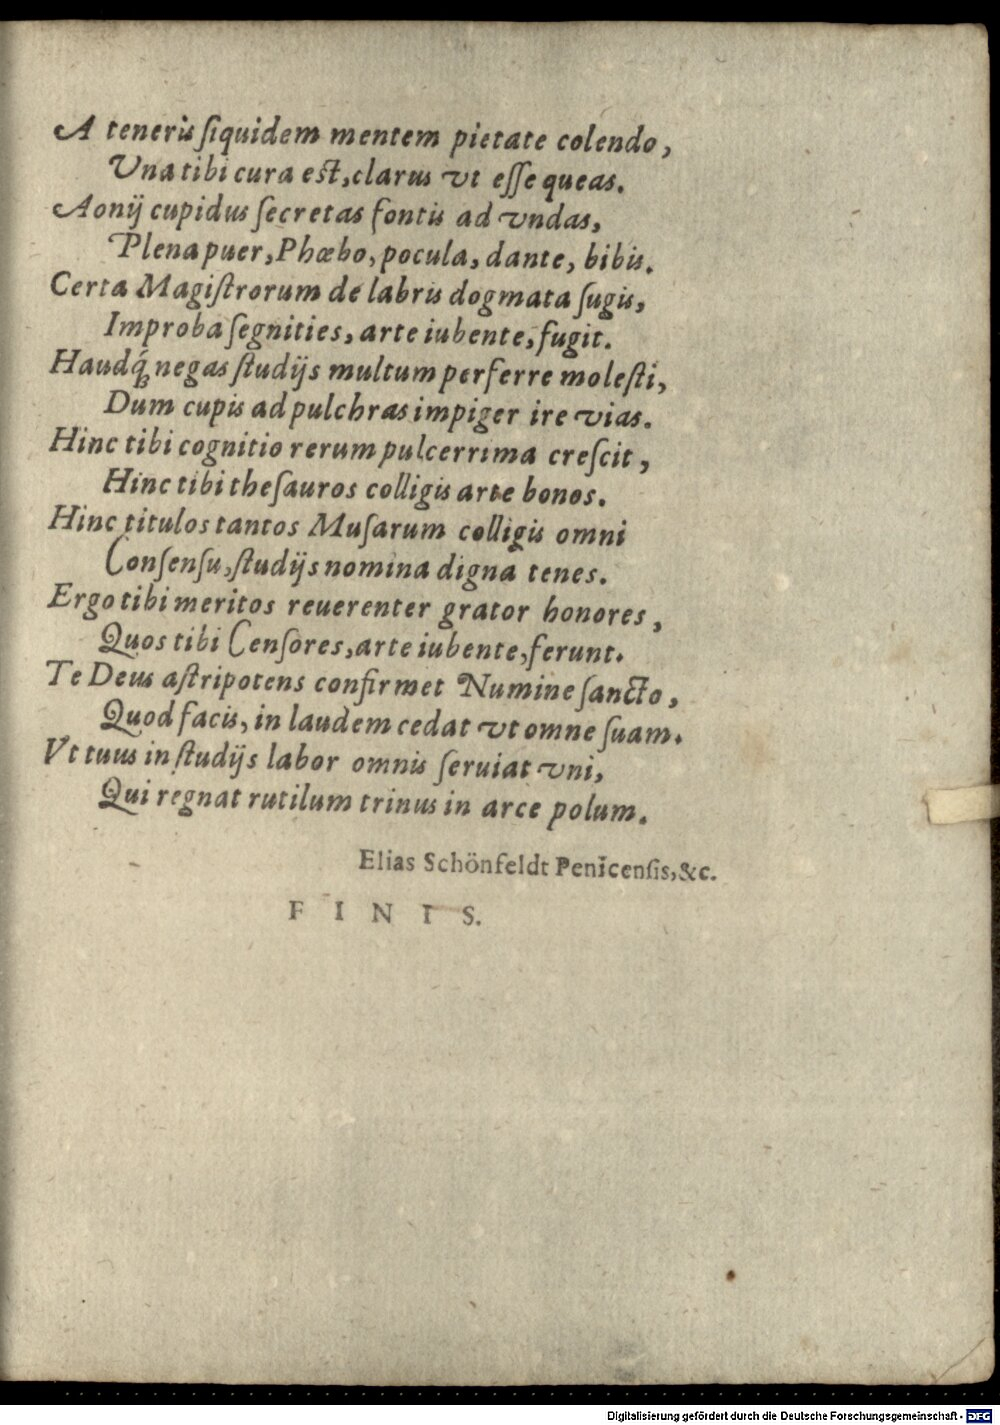 A teneris ſiquidem mentem pietate colendo,
Vna tibi cura eſt, clarus vt eſſe queas.
Aonij cupidus ſecretas fontis ad vndas,
Plena puer, Phœbo, pocula, dante, bibis.
Certa Magiſtrorum de labris dogmata ſugis,
Improba ſegnities, arte iubente, fugit.
Haudq́; negas ſtudijs multum perferre moleſti,
Dum cupis ad pulchras impiger ire vias.
Hinc tibi cognitio rerum pulcerrima creſcit,
Hinc tibi theſauros colligis arte bonos.
Hinc titulos tantos Muſarum colligis omni
Conſenſu, ſtudijs nomina digna tenes.
Ergo tibi meritos reuerenter grator honores,
Quos tibi Cenſores, arte iubente, ferunt.
Te Deus aſtripotens confirmet Numine ſancto,
Quod facis, in laudem cedat vt omne ſuam.
Vt tuus in ſtudijs labor omnis ſeruiat vni,
Qui regnat rutilum trinus in arce polum.
Elias Schönfeldt Penicenſis, &c.
FINIS.
Digitalisierung gefördert durch die Deutsche Forschungsgemeinschaft - DFG